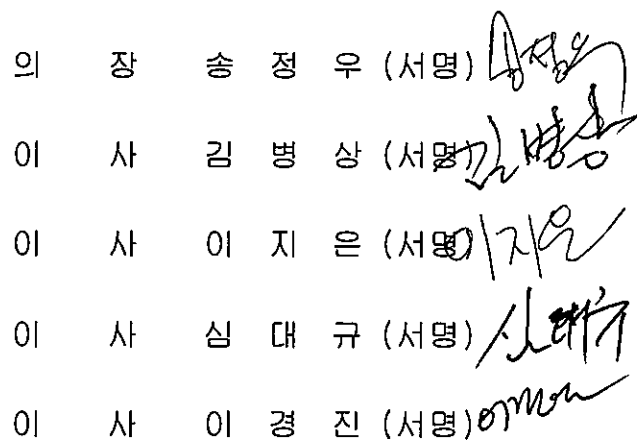 의 장 송 정 우 (서명) 송정우
이 사 김 병 상 (서명) 김병상
이 사 이 지 은 (서명) 이지은
이 사 심 대 규 (서명) 심대규
이 사 이 경 진 (서명)